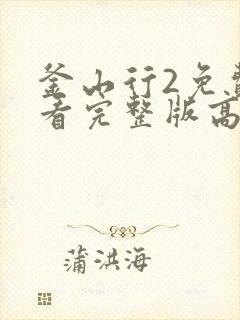 釜山行2免费
看完整版高
蒲洪海